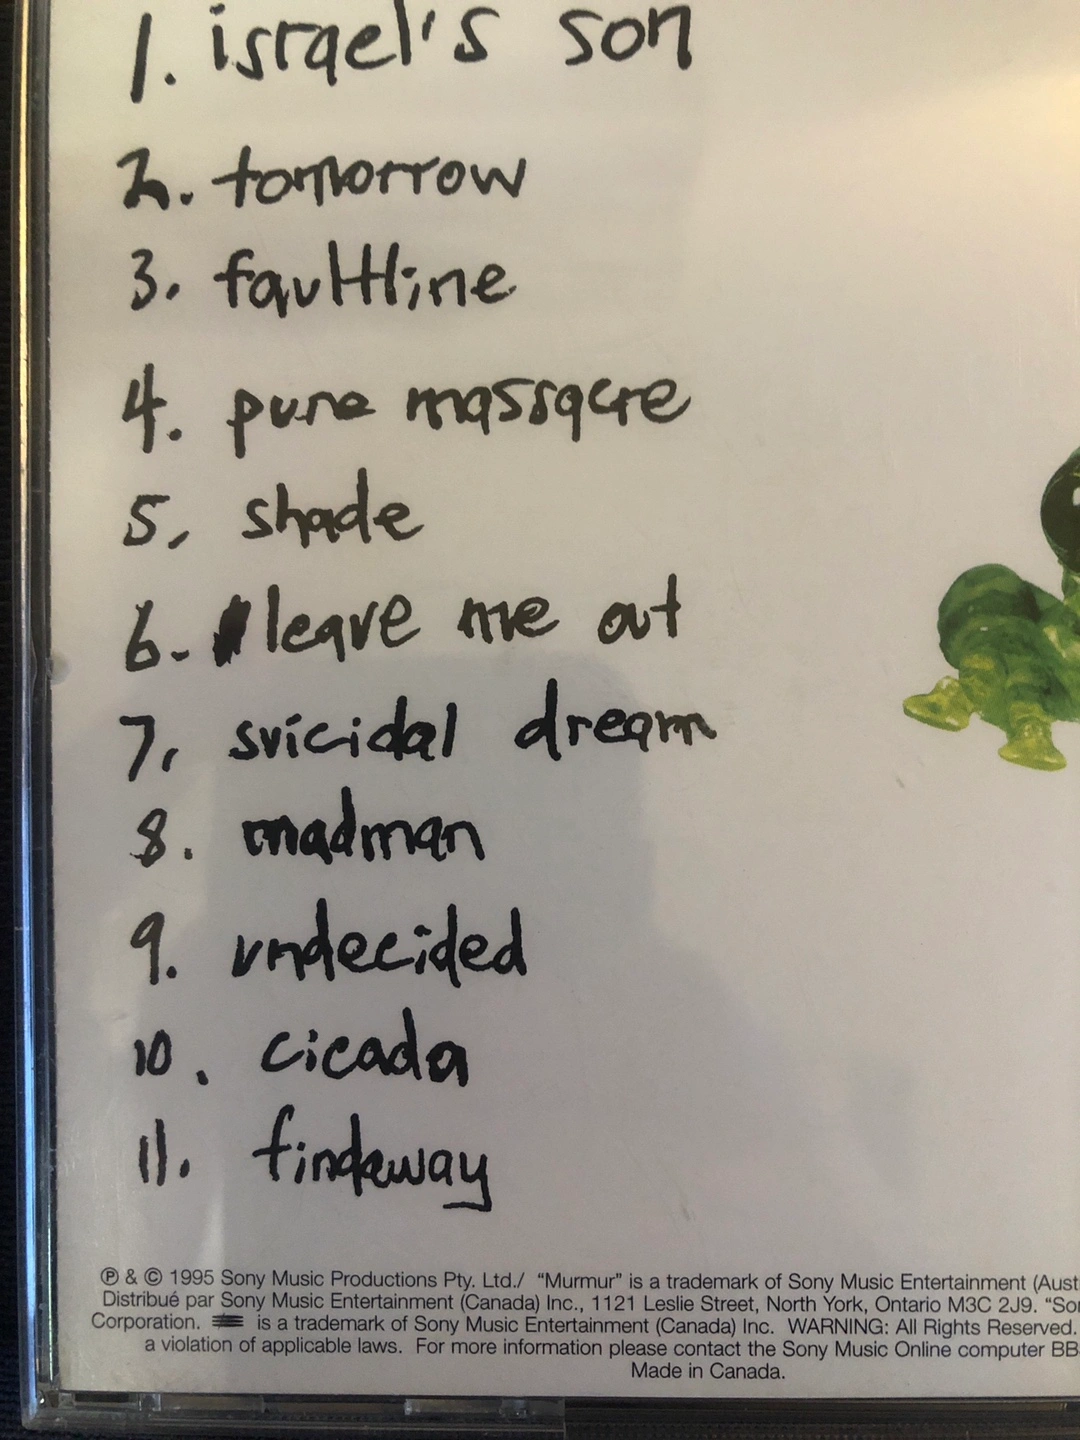 1. israel's son
2. tomorrow
3. faultline
4. pure massacre
5. shade
6. leave me out
7. suicidal dream
8. madman
9. undecided
10. cicada
11. findaway
℗ & © 1995 Sony Music Productions Pty. Ltd./ "Murmur" is a trademark of Sony Music Entertainment (Aust
Distribué par Sony Music Entertainment (Canada) Inc., 1121 Leslie Street, North York, Ontario M3C 2J9. "So
Corporation. is a trademark of Sony Music Entertainment (Canada) Inc. WARNING: All Rights Reserved.
a violation of applicable laws. For more information please contact the Sony Music Online computer BB
Made in Canada.